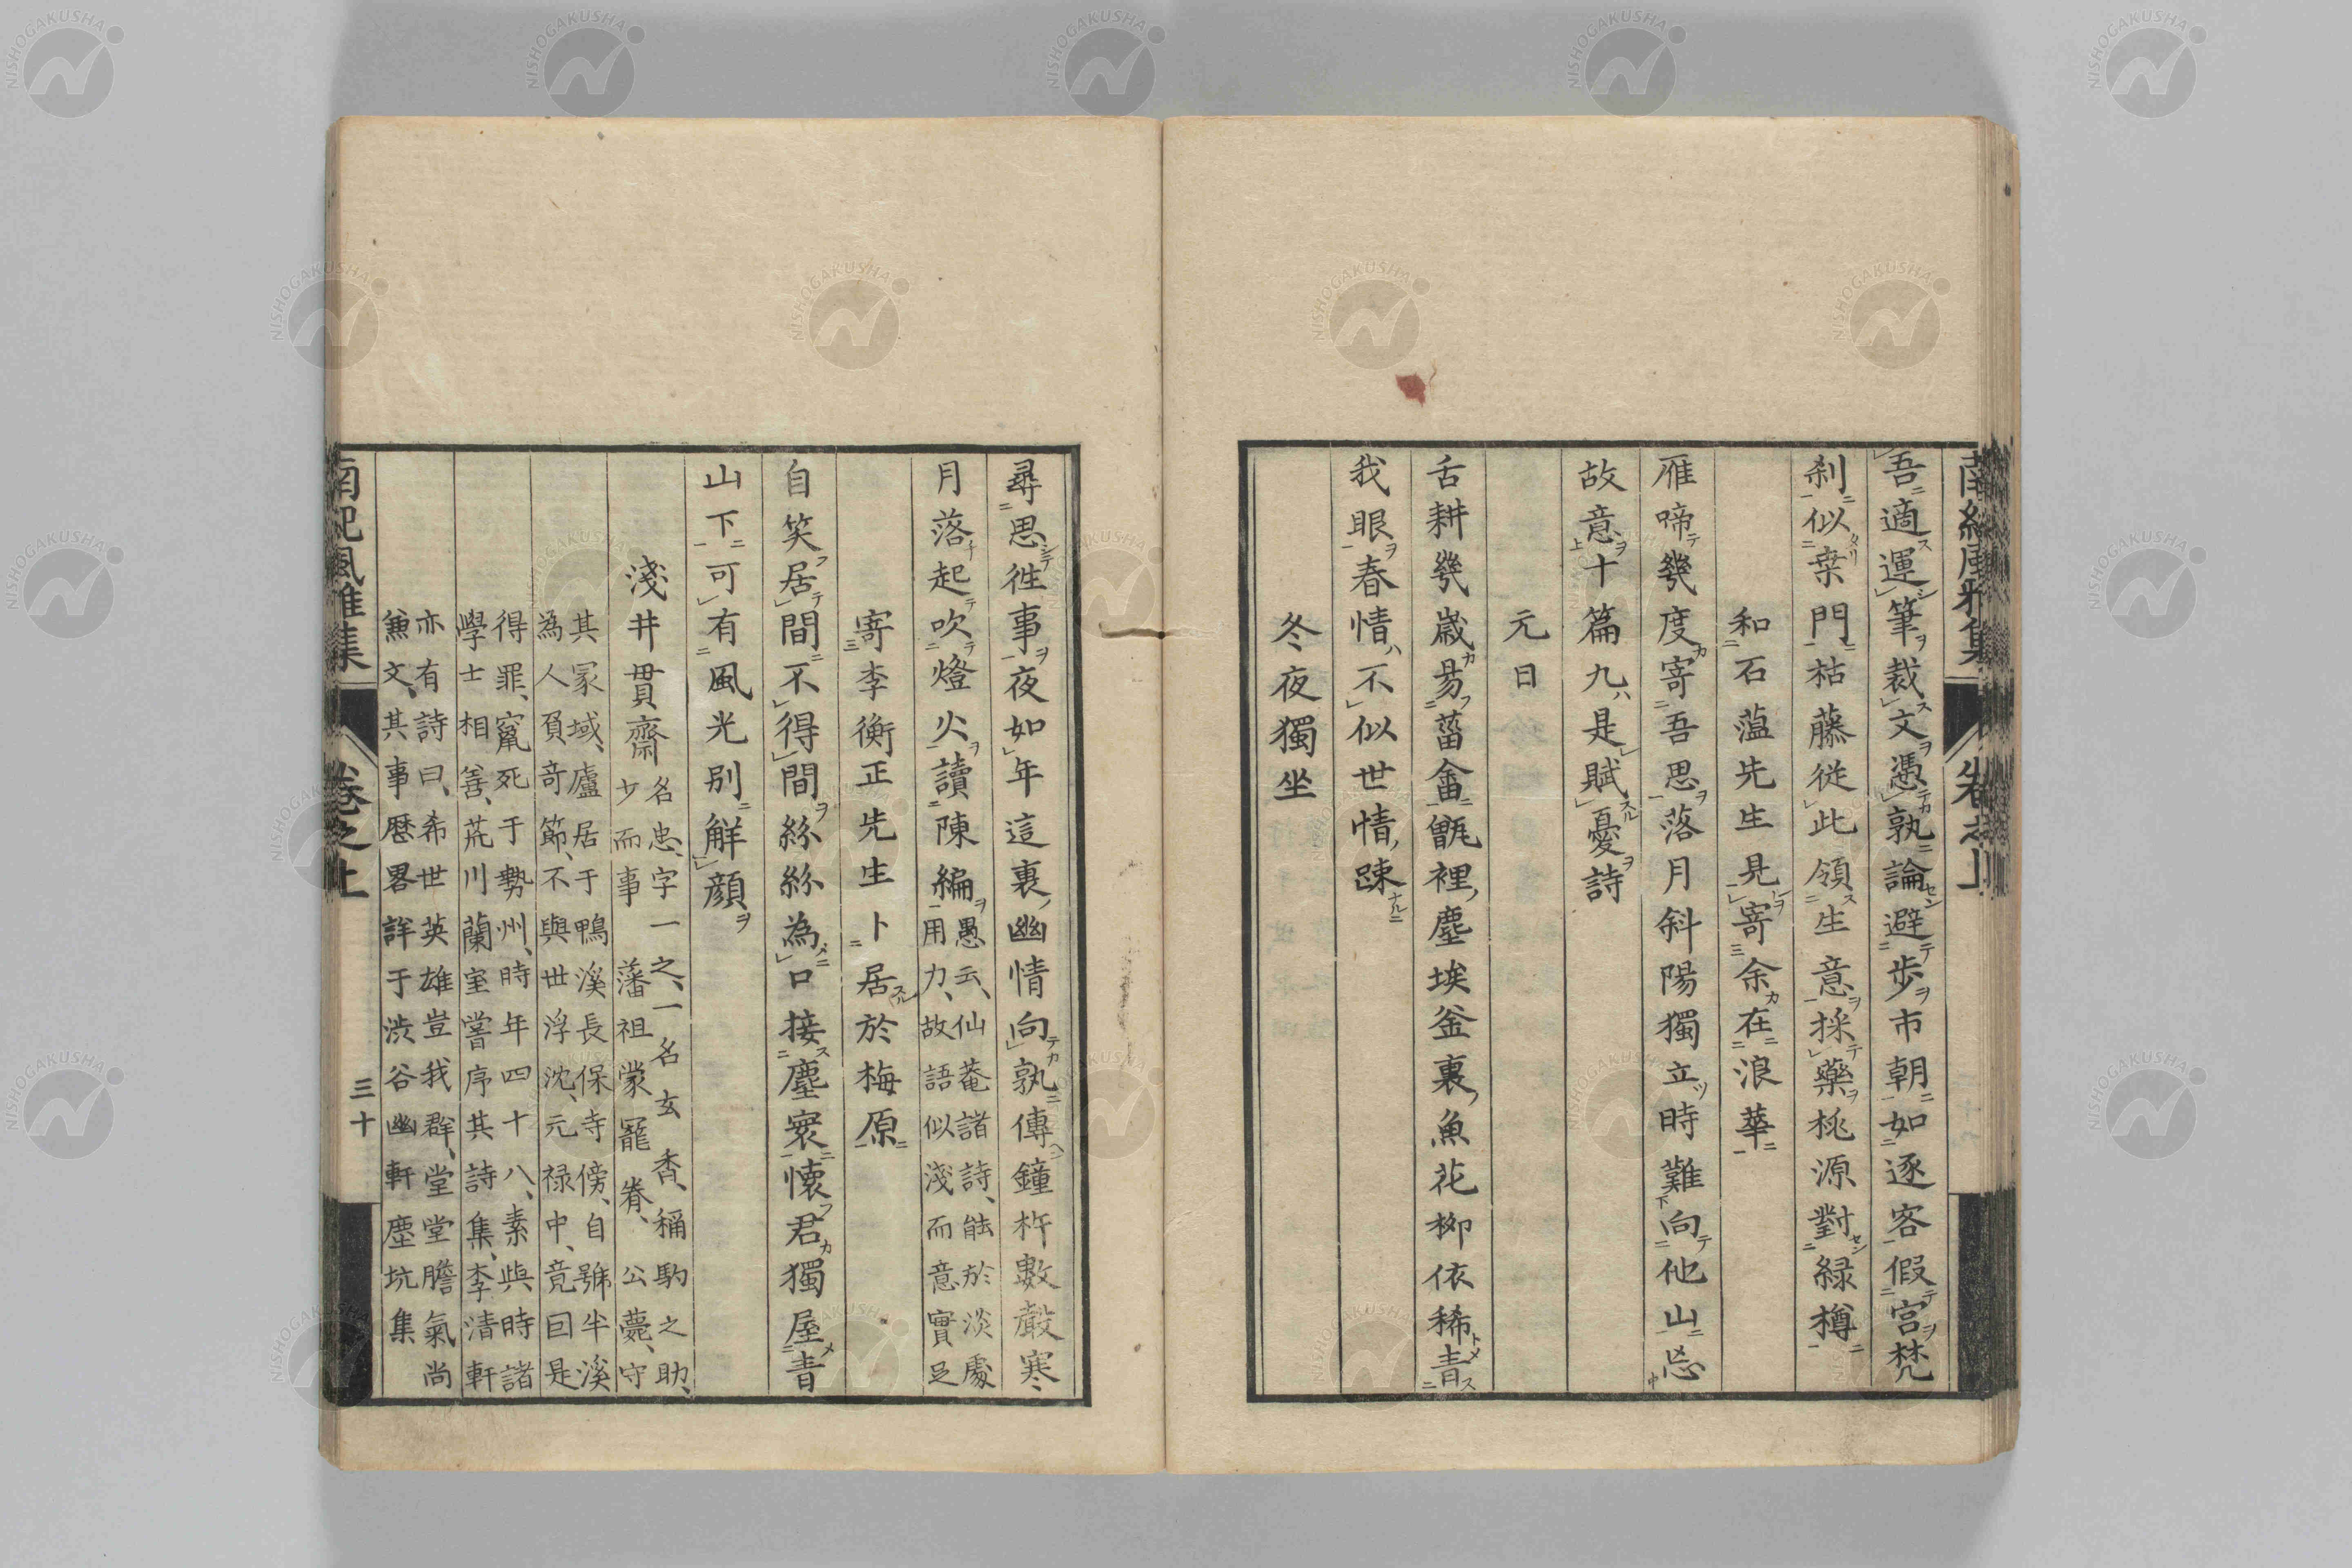 吾適運筆裁文憑孰論避歩市朝如逐客假宮梵
刹似桒門枯藤從此領生意採藥桃源對緑樽
和石薀先生見寄余在浪華
雁啼幾度寄吾思落月斜陽獨立時難向他山忘
故意十篇九是賦憂詩
元日
舌耕幾歲易菑畬甑裡塵埃釜裏魚花柳依稀青
我眼春情不似世情踈
冬夜獨坐
尋思徃事夜如年這裏幽情向孰傳鐘杵數嚴寒
月落起吹燈火讀陳編愚云仙菴諸詩能於淡處
用力故語似淺而意實足
寄李衡正先生卜居於梅原
自笑居間不得間絲絲為口接塵寰懷君獨屋青
山下可有風光別觧顔
淺井貫齋名忠字一之一名玄香稱駒之助
少而事藩祖蒙寵眷公薨守
其冢域廬居于鴨溪長保寺傍自號半溪
為人負竒節不與世浮沈元禄中竟囙是
得罪竄死于勢州時年四十八素與時諸
學士相善荒川蘭室嘗序其詩集李清軒
亦有詩曰希世英雄豈我群堂堂膽氣尚
兼文其事歴畧詳于渋谷幽軒塵坑集
南紀風雅集
卷之上
三十
NISHOGAKUSHA